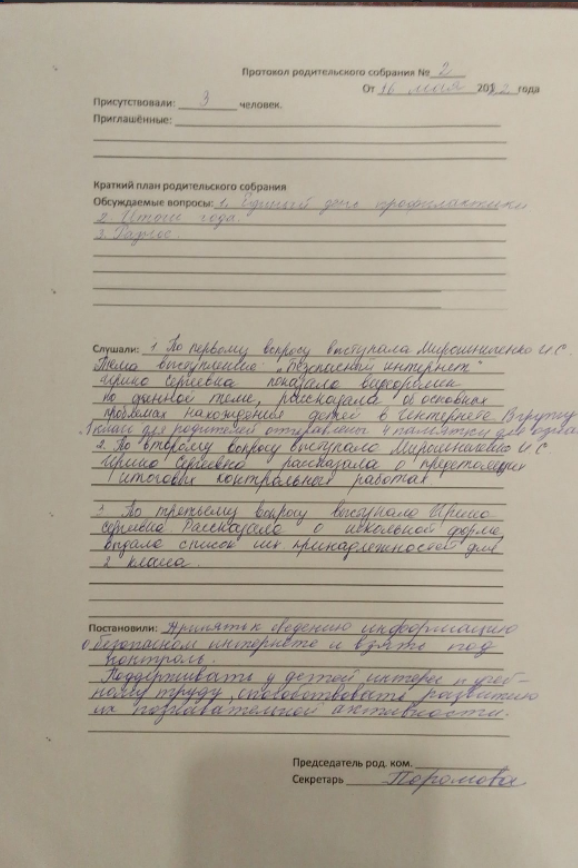 Протокол родительского собрания № 2
От 16 мая 2012 года
Присутствовали: 3 человек.
Приглашённые:
Краткий план родительского собрания
Обсуждаемые вопросы: 1. Единый день профилактики
2. Итоги года.
3. Разное.
Слушали: 1. По первому вопросу выступала Мирошниченко И.С.
Тема выступления „Безопасный интернет"
Ирина Сергеевна показала видеоролик
по данной теме, рассказала об основных
проблемах нахождения детей в интернете В группу
1 класс для родителей отправлены 4 памятки для
2. По второму вопросу выступала Мирошниченко И С
Ирина Сергеевна рассказала о предстоящих
итоговых контрольных работах
3 По третьему вопросу выступала Ирина
Сергеевна. Рассказала о школьной форме,
выдала список шк принадлежностей для
2 класса.
Постановили: Принять к сведению информацию
о безопасном интернете и взять под
контроль.
Поддерживать у детей интерес к учеб-
ному труду, способствовать развитию
их познавательной активности.
Председатель род. ком.
Секретарь Парамова